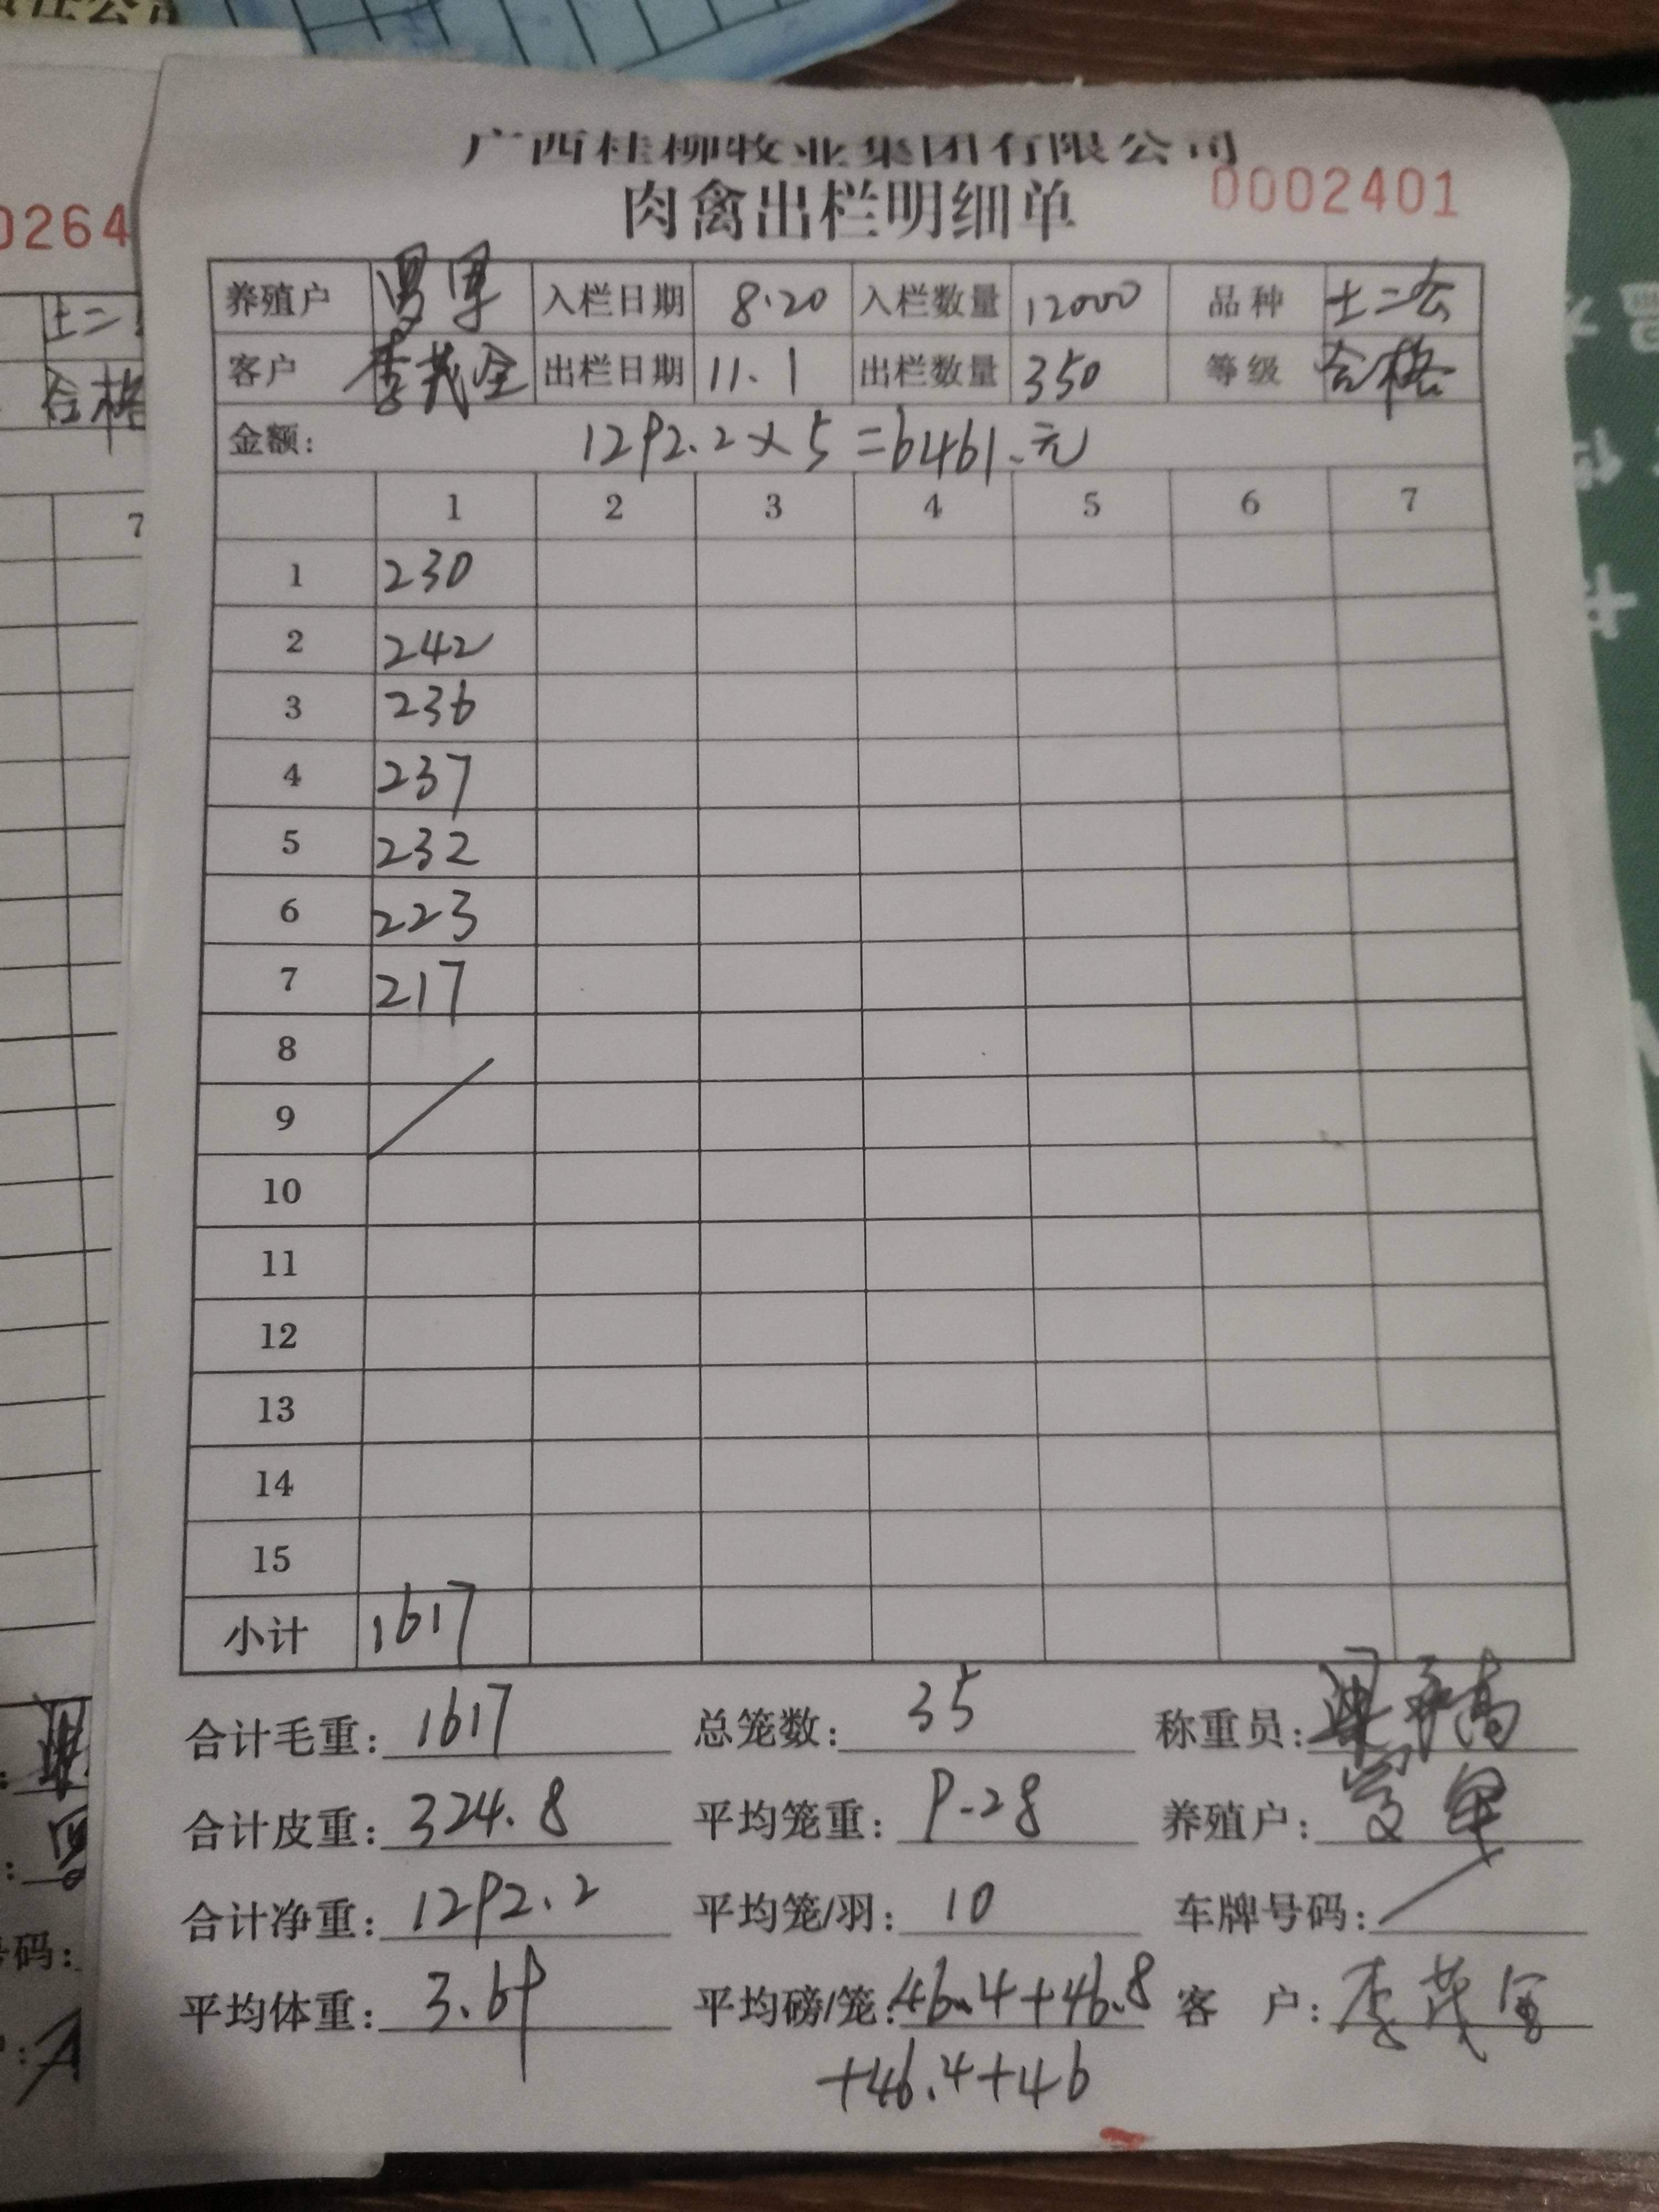 广西桂柳牧业集团有限公司
肉禽出栏明细单 0002401
养殖户 入栏日期 8.20 入栏数量 12000 品种 土二公
客户 李茂全 出栏日期 11.1 出栏数量 350 等级 合格
金额: 1292.2×5=6461.元
1 2 3 4 5 6 7
1 230
2 242
3 236
4 237
5 232
6 223
7 217
8
9
10
11
12
13
14
15
小计 1617
合计毛重: 1617 总笼数: 35 称重员:
合计皮重: 324.8 平均笼重: 9.28 养殖户:
合计净重: 1292.2 平均笼/羽: 10 车牌号码:
平均体重: 3.69 平均磅/笼: 46.4+46.8 客 户: 李茂全
+46.4+46
0264
土二
合格
7
号码: